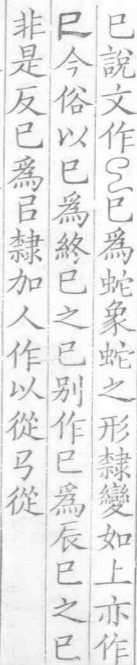 巳說文作𢀳巳爲蛇象蛇之形隸變如上亦作
𫝀今俗以巳爲終巳之巳别作巳爲辰巳之巳
非是反巳爲㠯隸加人作以從㔾從